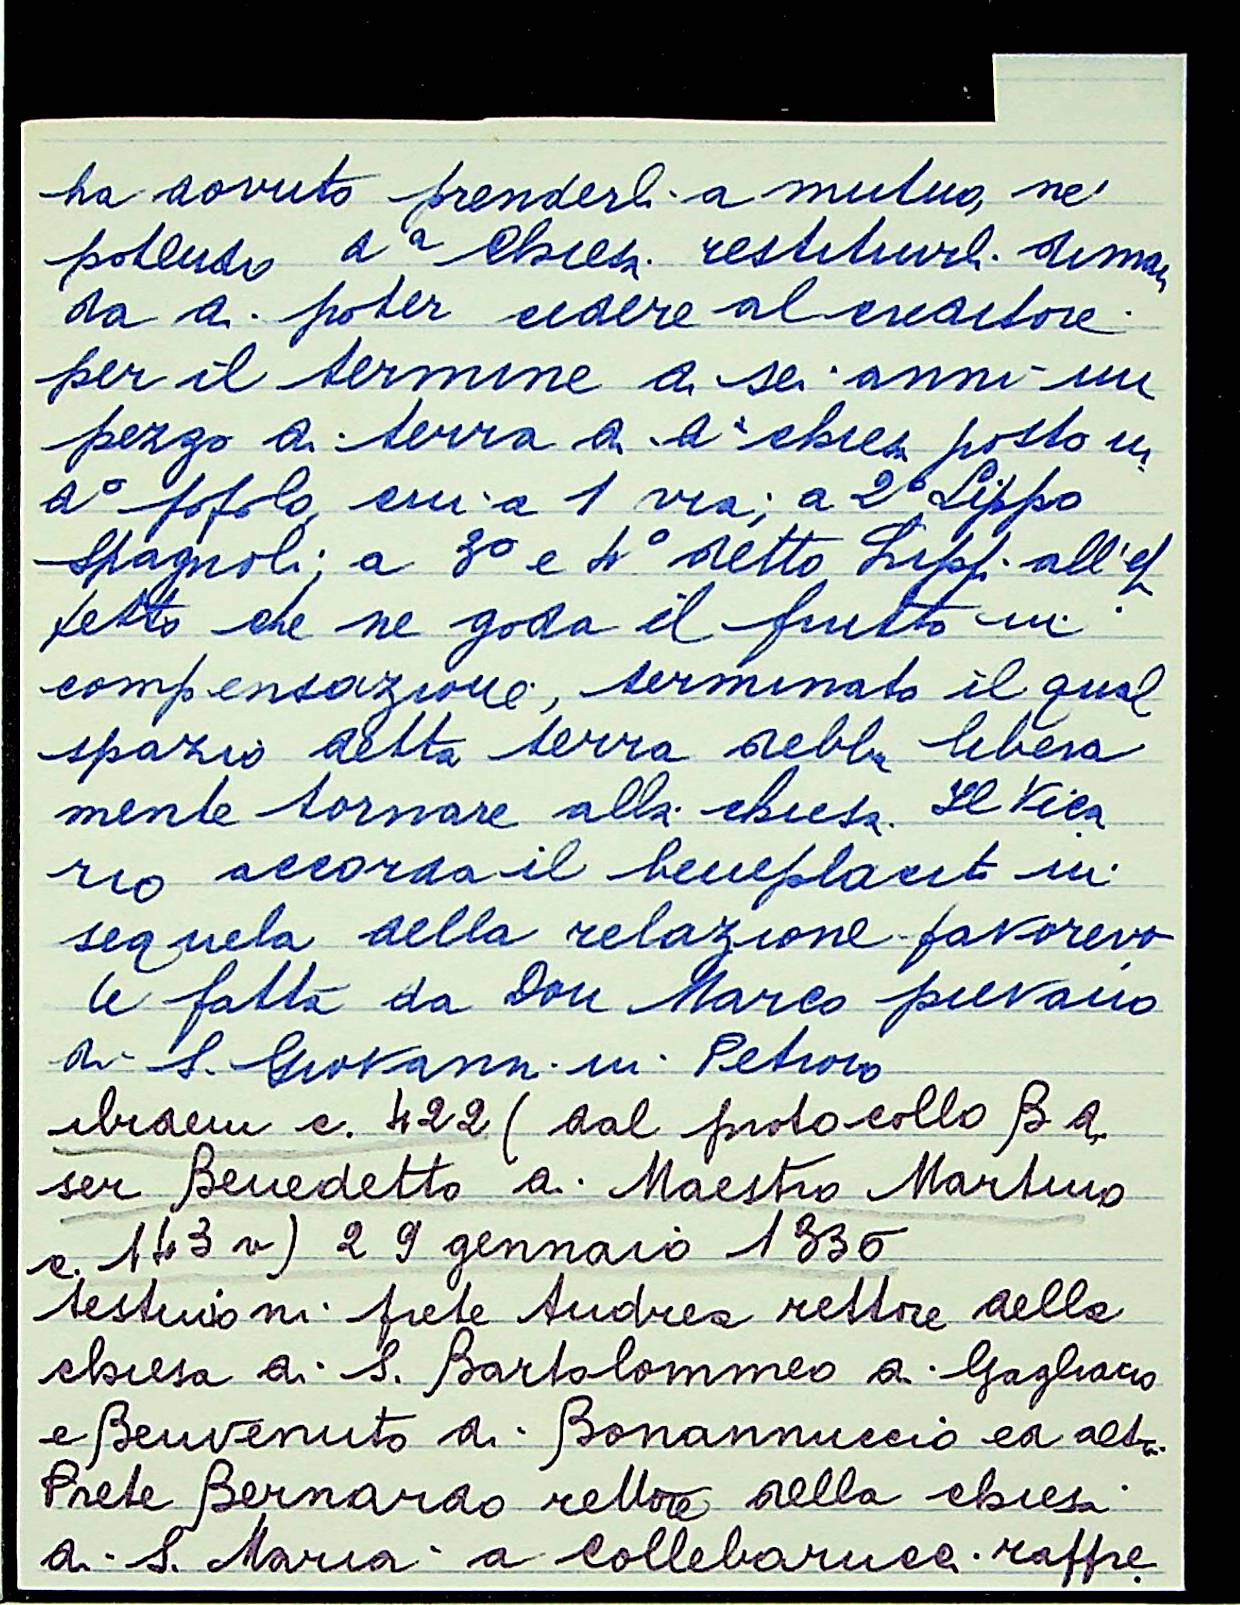 ha dovuto prenderli a mutuo, ne'
potendo dᵃ Chiesa restituirli diman
da di poter cedere al creditore
per il termine di sei anni un
pezzo di terra di dᵃ chiesa posto in
d° popolo, cui a 1 via; a 2° Lippo
Spagnoli; a 3° e 4° detto Lippo all'ef
fetto che ne goda il frutto in
compensazione, terminato il qual
spazio detta terra debba libera
mente tornare alla chiesa. Il Vica
rio accorda il beneplacito in
sequela della relazione favorevo
le fatta da Don Marco pievano
di S. Giovanni in Petroio
ibidem c. 422 (dal protocollo B di
ser Benedetto di Maestro Martino
c. 143 v) 29 gennaio 1335
testimoni prete Andrea rettore della
chiesa di S. Bartolommeo a Gagliano
e Benvenuto di Bonannuccio ed altri
Prete Bernardo rettore della chiesa
di S. Maria a Collebarucci raffre